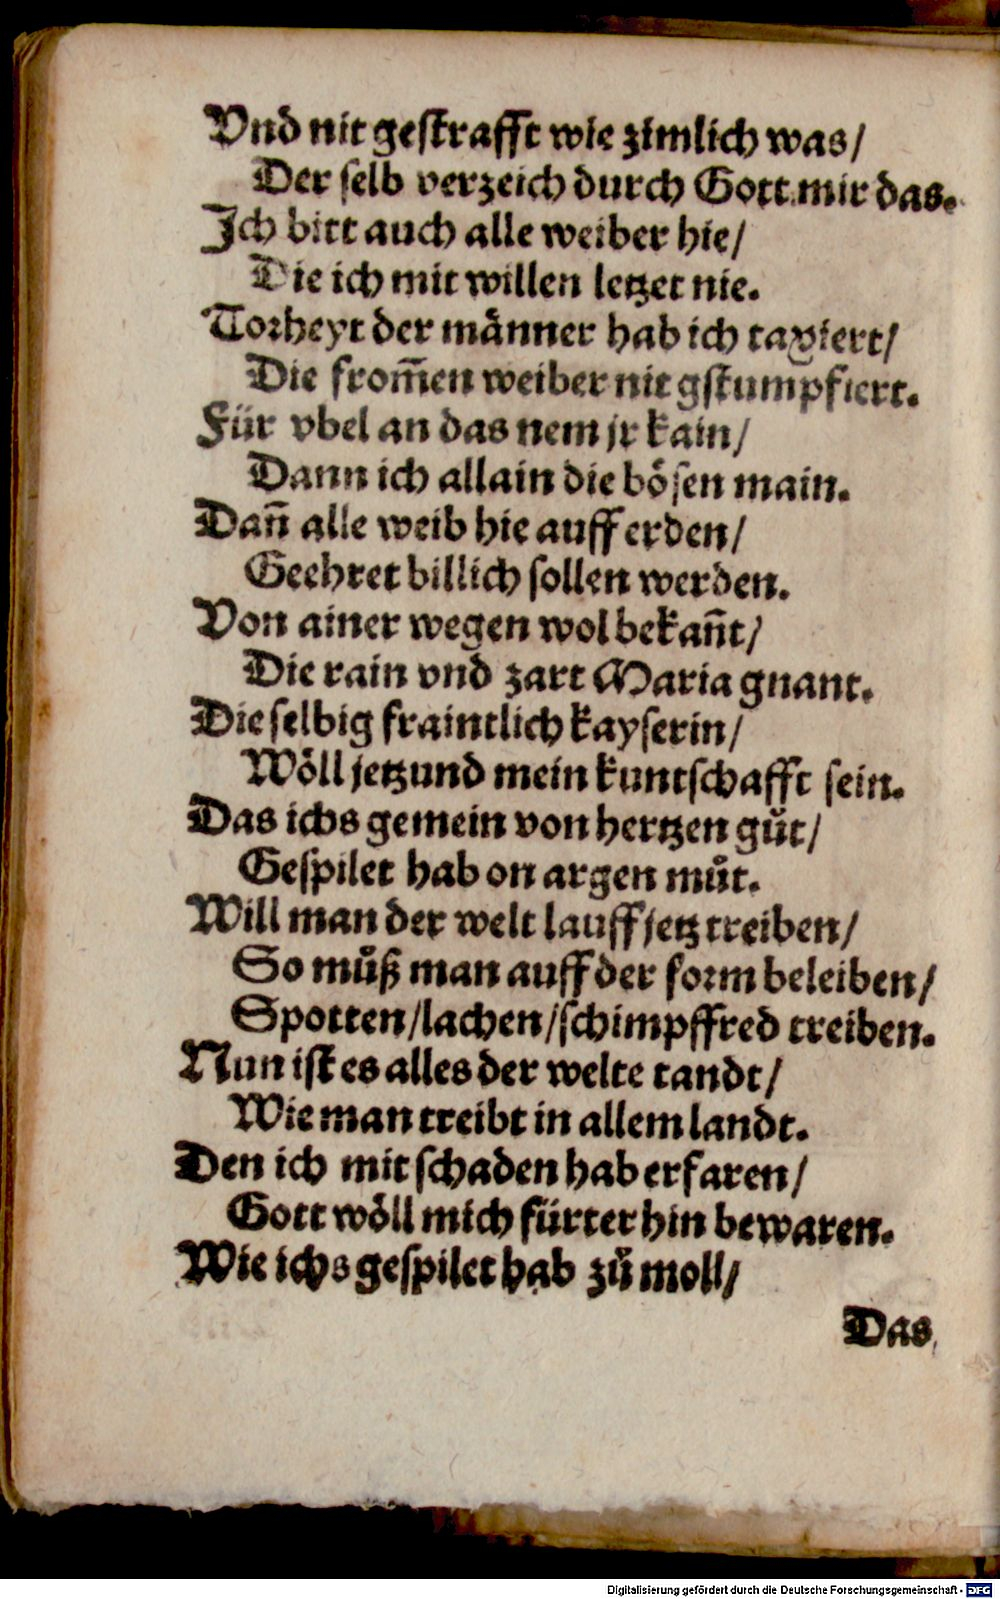 Vnd nit gestrafft wie zimlich was/
Der selb verzeich durch Gott mir das.
Ich bitt auch alle weiber hie/
Die ich mit willen letzet nie.
Torheyt der männer hab ich taxiert/
Die from̅en weiber nit gstumpfiert.
Für vbel an das nem jr kain/
Dann ich allain die bösen main.
Dan̅ alle weib hie auff erden/
Geehret billich sollen werden.
Von ainer wegen wol bekan̅t/
Die rain vnd zart Maria gnant.
Die selbig fraintlich kayserin/
Wöll jetzund mein kuntschafft sein.
Das ichs gemein von hertzen gůt/
Gespilet hab on argen můt.
Will man der welt lauff jetz treiben/
So můß man auff der form beleiben/
Spotten/lachen/schimpffred treiben.
Nun ist es alles der welte tandt/
Wie man treibt in allem landt.
Den ich mit schaden hab erfaren/
Gott wöll mich fürter hin bewaren.
Wie ichs gespilet hab zů moll/
Das
Digitalisierung gefördert durch die Deutsche Forschungsgemeinschaft - DFG